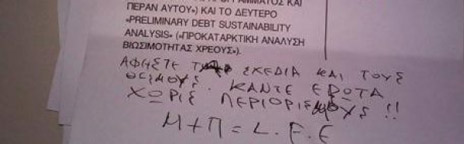 ΠΕΡΑΝ ΑΥΤΟΥ») ΚΑΙ ΤΟ ΔΕΥΤΕΡΟ
«PRELIMINARY DEBT SUSTAINABILITY
ANALYSIS» («ΠΡΟΚΑΤΑΡΚΤΙΚΗ ΑΝΑΛΥΣΗ
ΒΙΩΣΙΜΟΤΗΤΑΣ ΧΡΕΟΥΣ»).
ΑΦΗΣΤΕ ΤΑ ΣΧΕΔΙΑ ΚΑΙ ΤΟΥΣ
ΘΕΣΜΟΥΣ. ΚΑΝΤΕ ΕΡΩΤΑ
ΧΩΡΙΣ ΠΕΡΙΟΡΙΣΜΟΥΣ !!
Μ+Π = L.F.E